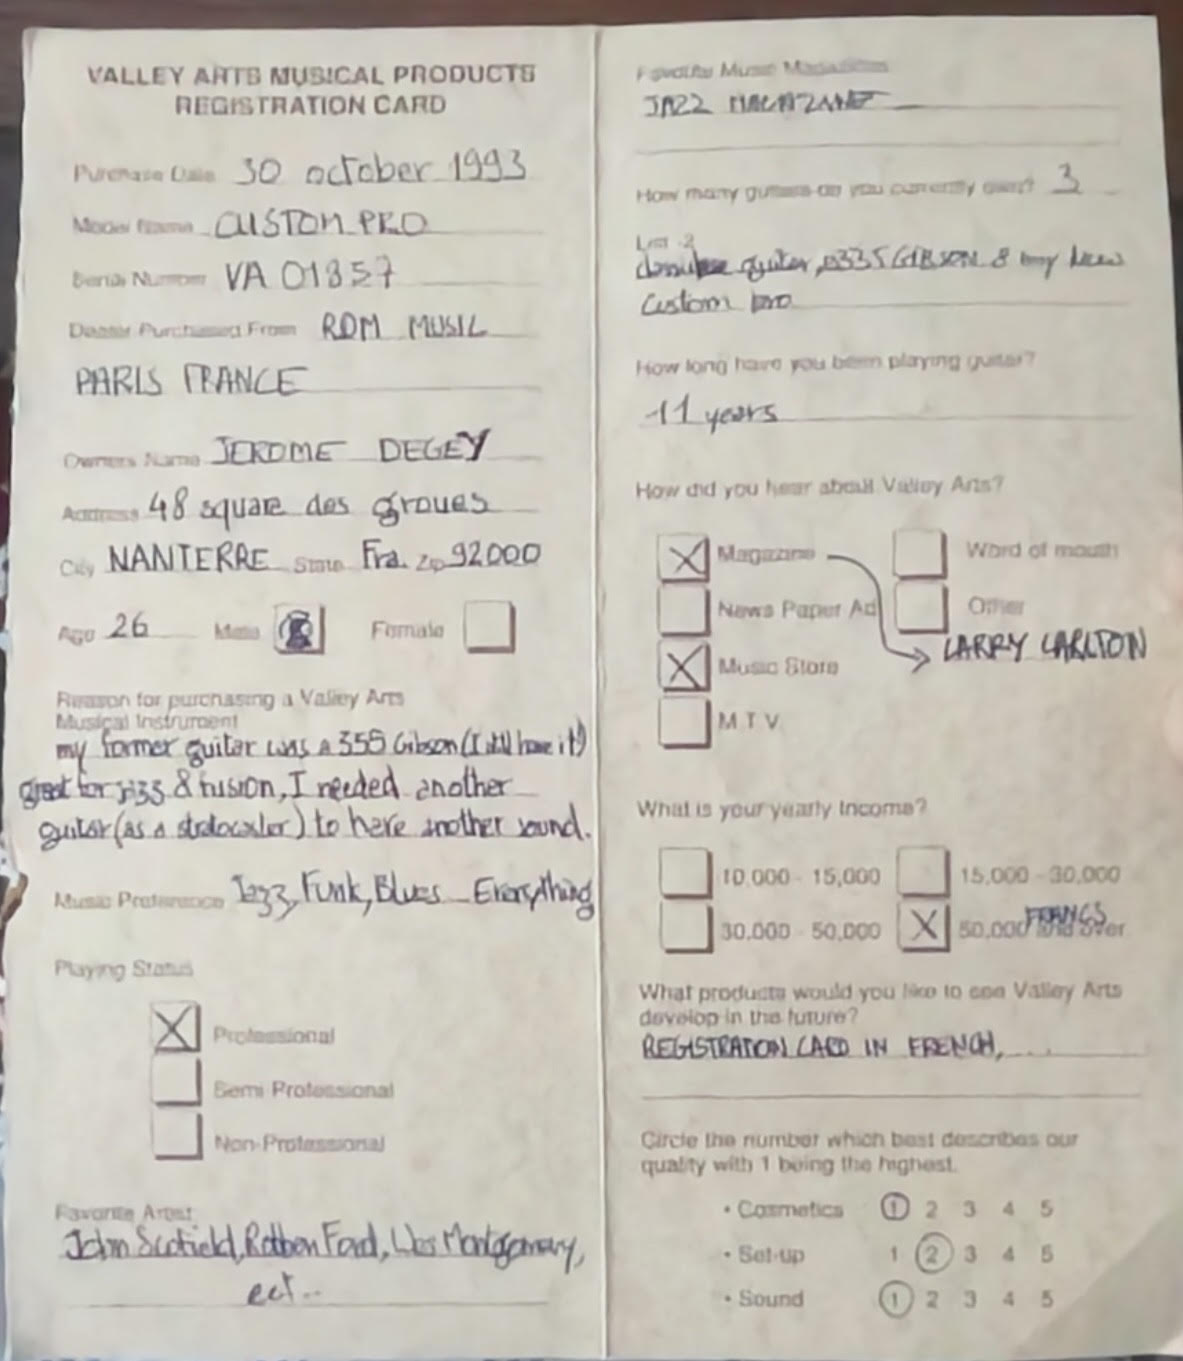 VALLEY ARTS MUSICAL PRODUCTS
REGISTRATION CARD
Purchase Date 30 october 1993
Model Name CUSTOM PRO
Serial Number VA 01857
Dealer Purchased From ROM MUSIC
PARIS FRANCE
Owners Name JEROME DEGEY
Address 48 square des groues
City NANTERRE State Fra. Zip 92000
Age 26 Male Female
Reason for purchasing a Valley Arts
Musical Instrument
my former guitar was a 355 Gibson (I still have it)
great for jazz & fusion, I needed another
guitar (as a stratocaster) to have another sound.
Music Preference Jazz, Funk, Blues Everything
Playing Status
X Professional
Semi Professional
Non-Professional
Favorite Artist
John Scofield, Robben Ford, Wes Montgomery,
ect...
Favorite Music Magazines
JAZZ MAGAZINE
How many guitars do you currently own? 3
List
guitar, 335 GIBSON & my new
Custom pro
How long have you been playing guitar?
11 years
How did you hear about Valley Arts?
X Magazine Word of mouth
News Paper Ad Other
LARRY CARLTON
X Music Store
M.T.V.
What is your yearly Income?
10,000 - 15,000 15,000 - 30,000
FRANCS
30,000 - 50,000 X 50,000 and over
What products would you like to see Valley Arts
develop in the future?
REGISTRATION CARD IN FRENCH, ...
Circle the number which best describes our
quality with 1 being the highest.
• Cosmetics 1 2 3 4 5
• Set-up 1 2 3 4 5
• Sound 1 2 3 4 5